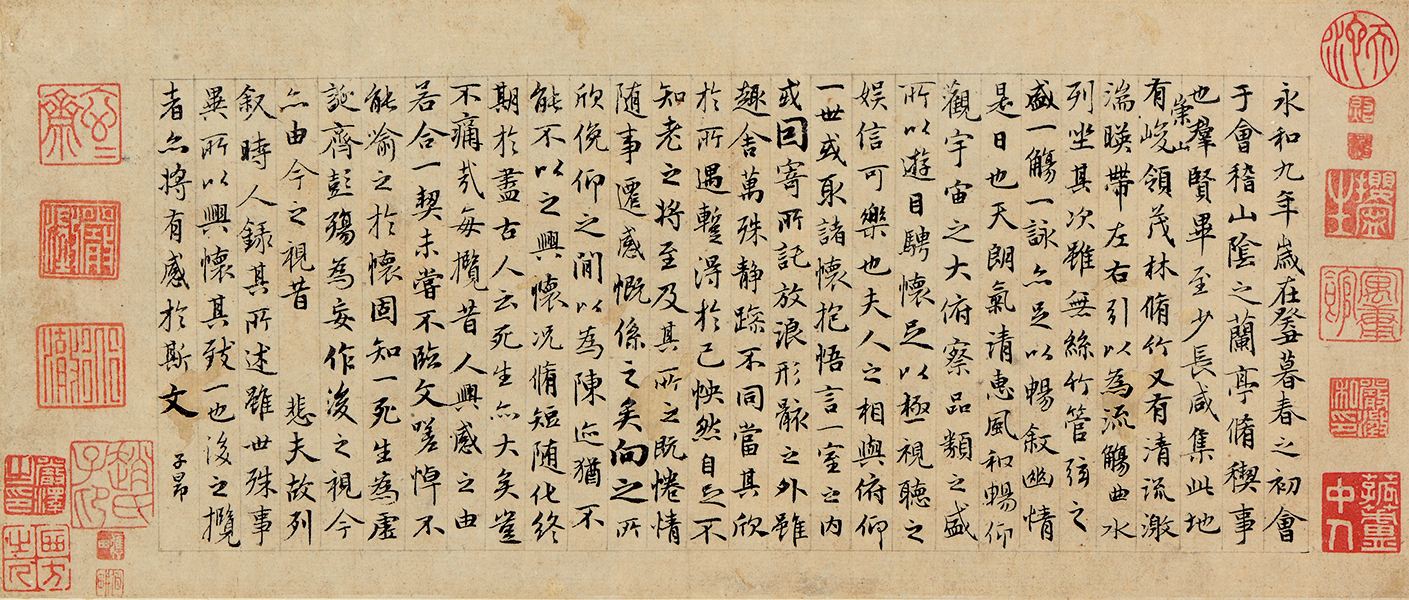 永和九年歲在癸丑暮春之初會
于會稽山陰之蘭亭脩稧事
也羣賢畢至少長咸集此地
有崇山峻領茂林脩竹又有清流激
湍暎帶左右引以為流觴曲水
列坐其次雖無絲竹管弦之
盛一觴一詠亦足以暢敘幽情
是日也天朗氣清惠風和暢仰
觀宇宙之大俯察品類之盛
所以遊目騁懷足以極視聽之
娛信可樂也夫人之相與俯仰
一世或取諸懷抱悟言一室之內
或因寄所託放浪形骸之外雖
趣舍萬殊静躁不同當其欣
於所遇蹔得於己怏然自足不
知老之將至及其所之既惓情
随事遷感慨係之矣向之所
欣俛仰之間以為陳迹猶不
能不以之興懷況脩短随化終
期於盡古人云死生亦大矣豈
不痛哉每攬昔人興感之由
若合一契未嘗不臨文嗟悼不
能喻之於懷固知一死生為虛
誕齊彭殤為妄作後之視今
亦由今之視昔 悲夫故列
敘時人錄其所述雖世殊事
異所以興懷其致一也後之攬
者亦將有感於斯文
子昂
趙氏子昂